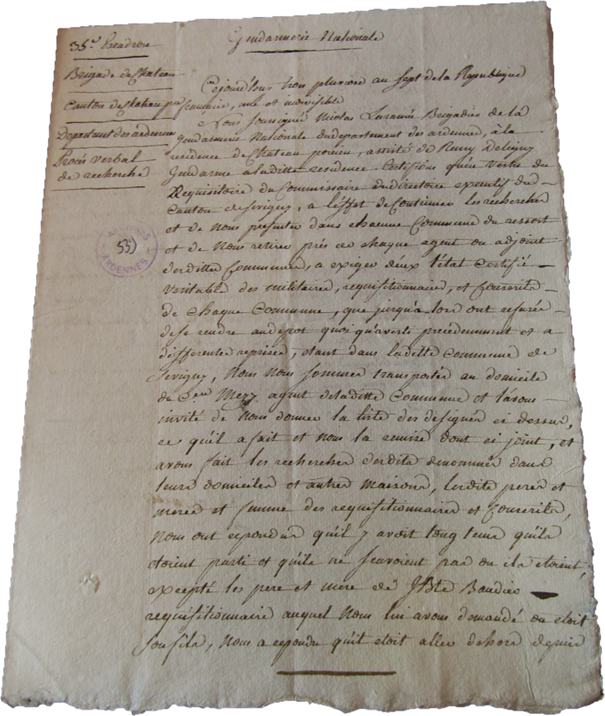 Gendarmerie Nationale
35e Escadron
Brigade de Chateau
Canton de Chateau porcien
Departement des ardennes
Procès verbal
de recherche
Cejourd'huy trois pluviose an sept de la Republique
francaise, une et indivisible
Nous soussigné Nicolas Brigadier de la
Gendarmerie Nationale du departement des ardennes, à la
residence de Chateau porcien, assisté de Remy
Gendarme a laditte residence Certifions qu'en vertu du
Requisitoire du Commissaire du directoire executif du
Canton de Sevigny, a l'effet de Continuer les recherches
et de nous presenter dans chacune Commune du ressort
et de nous retirer près de chaque agent ou adjoint
desdittes Communes, a exiger d'eux l'état Certifié
veritable des militaires, requisitionnaires, et Conscrits
de chaque Commune, que jusqu'alors ont refusés
de se rendre au depot quoi qu'avertis precedemment et a
differentes reprises, etant dans laditte Commune de
Sevigny, Nous nous sommes transportés au domicile
du Cen Mezy agent de laditte Commune et l'avons
invité de nous donner la liste des designés ci dessus,
ce qu'il a fait et nous la remise dont ci joint, et
avons fait les recherches desdits denommés dans
leurs domiciles et autres maisons, lesdits peres et
meres et femme des requisitionnaires et Conscrits,
nous ont repondus qu'il y avoit long tems qu'ils
etoient partis et qu'ils ne scavoient pas ou ils etoient,
excepté les pere et mere de JBte Baudier
requisitionnaire auquel nous lui avons demandé ou etoit
son fils, nous a repondu qu'il etoit allé dehors depuis
ARCHIVES
ARDENNES